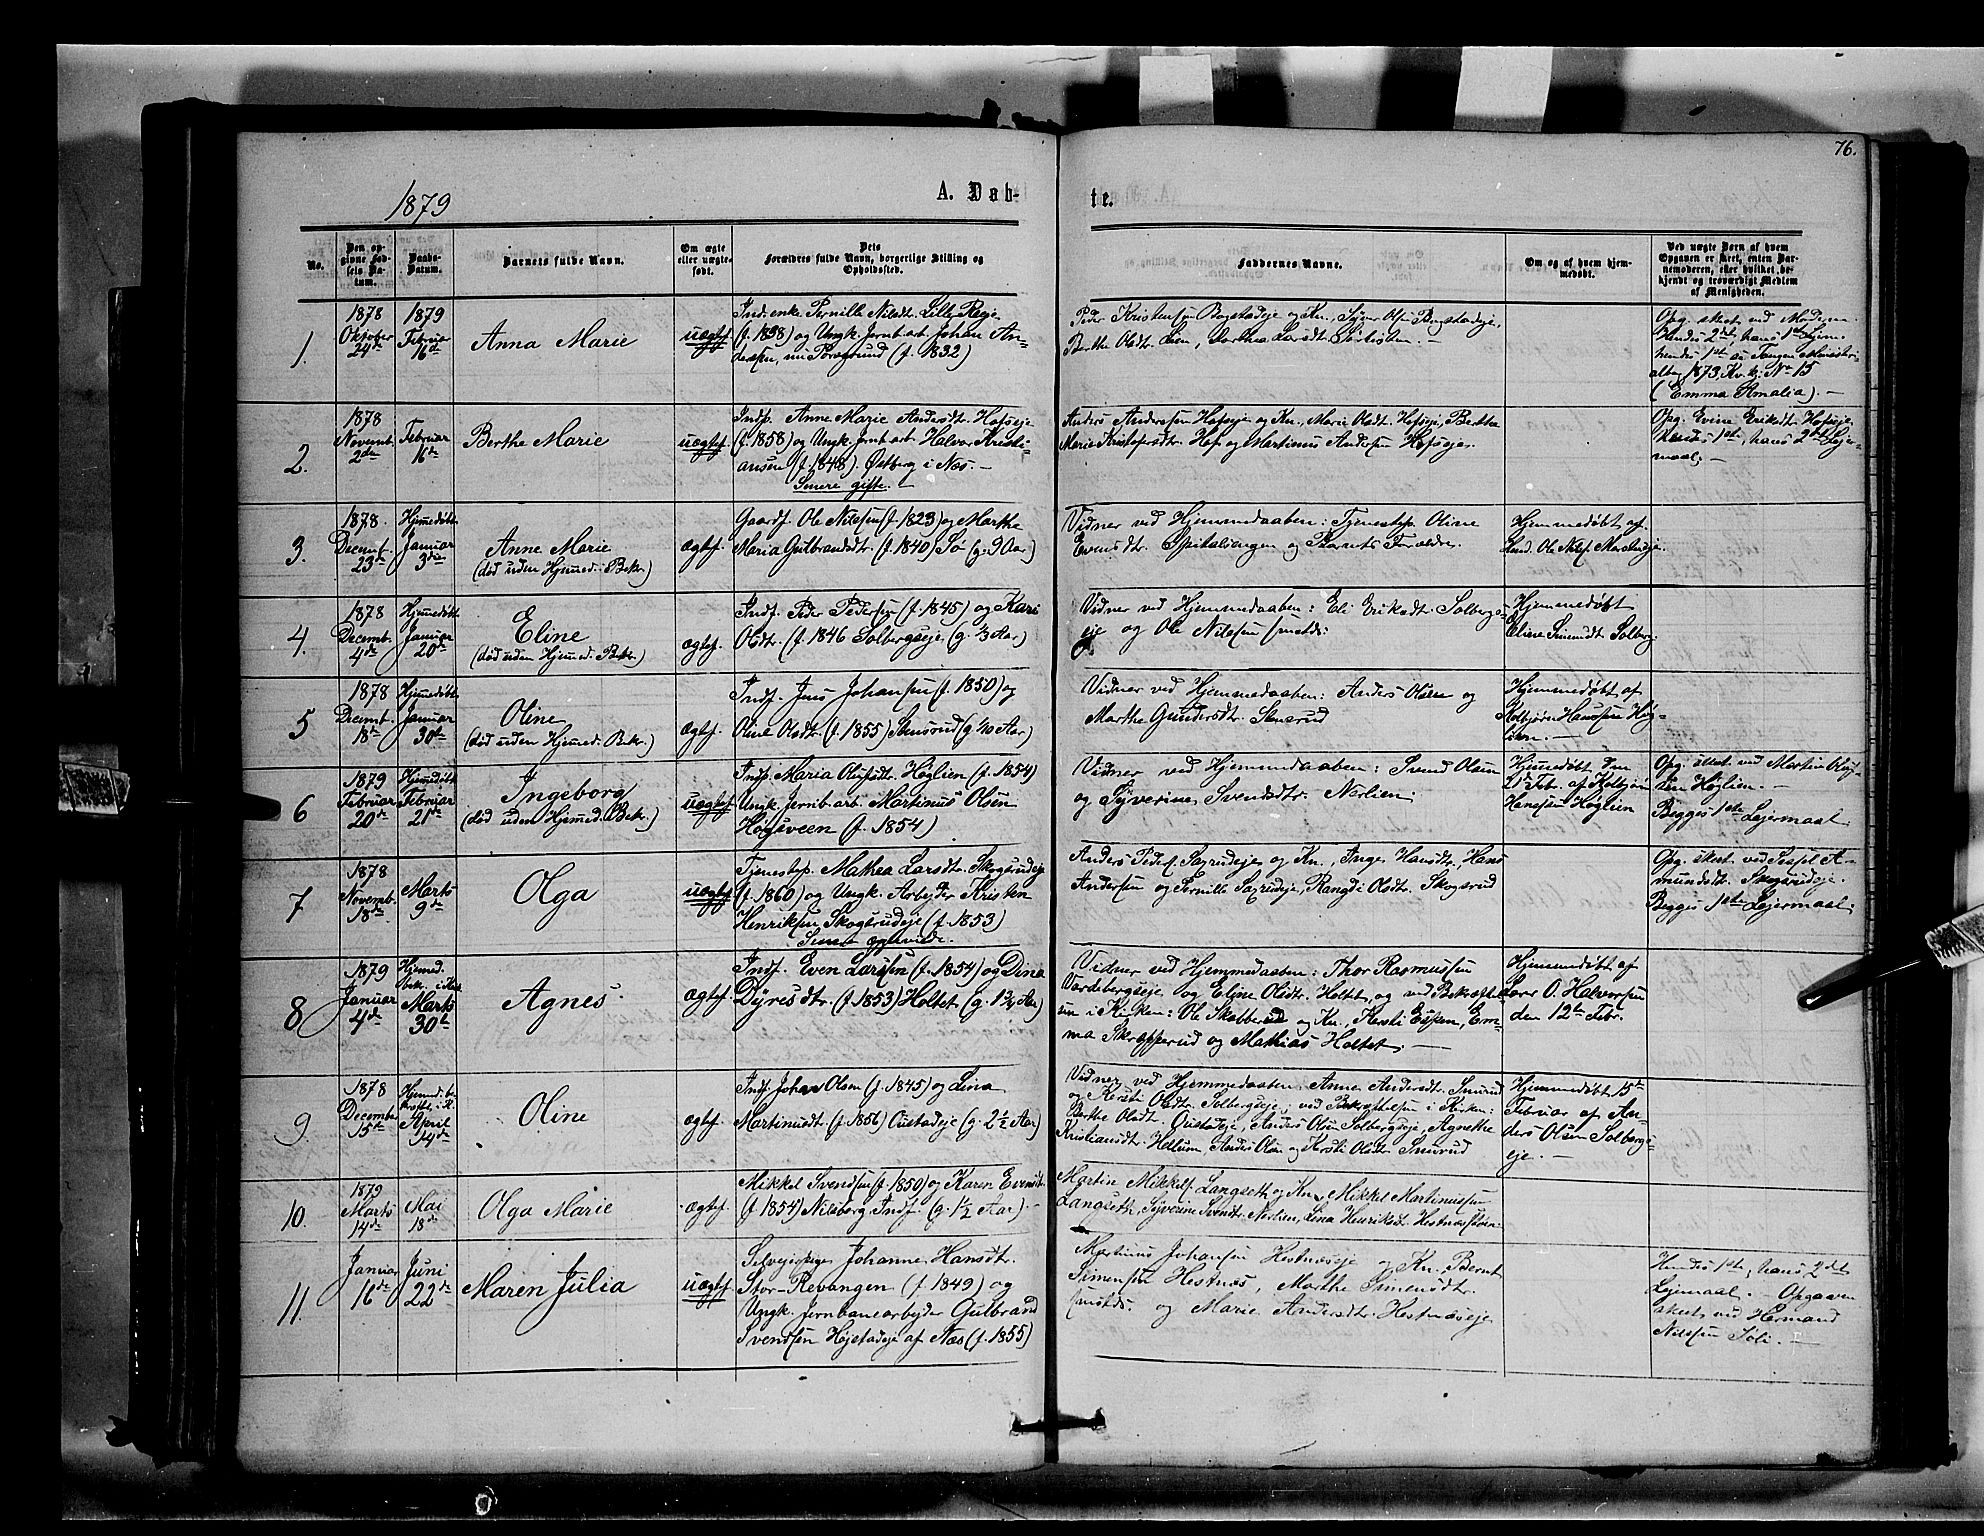 76.
1879
A. Døb-
te.
No.
Den op-
givne Fød-
sels Da-
tum.
Daabs-
Datum.
Barnets fulde Navn.
Om ægte
eller uægte
født.
Dets
Forældres fulde Navn, borgerlige Stilling og
Opholdssted.
Faddernes Navne.
Om og af hvem hjem-
medøbt.
Ved uægte Børn af hvem
Opgaven er sket, enten Bar-
nemoderen, eller hvilket be-
kjendt og troværdigt Medlem
af Menigheden.
1.
1878
Oktober
24de
1879
Februar
16de
Anna Marie
uægtef.
Ind. enke Pernille Nilsdt. Lille Regi-
(f. 1838) og Ungk. Jernb. arb. Johan An-
dersen, nu Porsgrund (f. 1832)
Peder Kristensen Bogstadeje og Kn., Søren Olsen Bogstadeje,
Berthe Olsdt. Lien, Dorthea Larsdt.
Opg. skeet ved Moderen.
Hendes 2det, hans 1ste Lejerm.
hendes 1ste se Tangen Ministeri-
albog 1873, Kv. kj. No 15
(Emma Amalia). —
2.
1878
Novemb.
2den
Februar
16de
Berthe Marie
uægtef.
Indp. Anne Marie Andersdt. Hofseje
(f. 1858) og Ungk. Jernb. arb. Halvor Kristi-
ansen (f. 1848). Østberg i Næs. —
Senere gifte. —
Anders Andersen Hofseje og Kn., Marie Olsdt. Hofseje, Berthe
Marie Kristofersdt. Hof og Martinus Andersen Hofseje.
Opg. Eline Eriksdt. Hofseje.
Hendes 1ste, hans 2det Lejer-
maal. —
3.
1878.
Decemb.
23de
Hjemmedøbt
Januar
3die
Anne Marie
(død uden Hjemmed. Bekr.)
ægtef.
Gaardf. Ole Nilsen (f. 1823) og Marthe
Maria Gulbrandsdt. (f. 1840) Sø (g. 9 Aar)
Vidner ved Hjemmedaaben: Tjenestep. Oline
Evensdt. Spitalengen og Barnets Forældre.
Hjemmedøbt af
Ind. Ole Nils.
4.
1878
Decemb.
4de
Hjemmedøbt
Januar
20de
Eline
(død uden Hjemmed. Bekr.)
ægtef.
Indf. Peder Pedersen (f. 1845) og Kari
Olsdt. (f. 1846 Solbergseje. (g. 1/3 Aar)
Vidner ved Hjemmedaaben: Eli Eriksdt. Solbergs-
eje og Ole Nilssen smstds.
Hjemmedøbt
Eline Simensdt. Solberg.
5
1878
Decemb.
18de
Hjemmedøbt
Januar
30te
Oline
(død uden Hjemmed. Bekr.)
ægtef.
Indf. Jens Johansen (f. 1850) og
Oline Olsdt. (f. 1855) Semsrud (g. 1/10 Aar)
Vidner ved Hjemmedaaben: Anders Olsen og
Marthe Gundersdt.
Hjemmedøbt af
Kolbjørn Hansen Høg-
lien. —
6
1879
Februar
20de
Hjemmedøbt
Februar
21de
Ingeborg
(død uden Hjemmed. Bekr.)
uægtef.
Indp. Maria Olufsdt. Høglien (f. 1854)
Ungk. Jernb. arb. Martinus Olsen
Høgsveen (f. 1854)
Vidner ved Hjemmedaaben: Svend Olsen
og Syverine Svendsdt. Nerlien.
Hjemmedøbt den
21de Febr. af Kolbjørn
Hansen Høglien
Opg. skeet ved Martin Oluf-
sen Høglien.
Begges 1ste Lejermaal.
7
1878
Novemb.
18de
Marts
9de
Olga
uægtef.
Tjenestep. Mathea Larsdt. Skogsrudeje
(f. 1860) og Ungk. Arbejder Kristen
Henriksen Skogsrudeje (f. 1853)
Senere ægteviede.
Anders Peders. Saxrudeje og Kn., Inge Hansdt., Hans
Andersen og Pernille Saxrudeje, Rangdi Olsdt. Skogsrud
Opg. skeet ved Sissel A-
mundsdt. Skogsrudeje.
Begges 1ste Lejermaal.
8
1879
Januar
4de
Hjemmed.
bekr. i Kirk.
Marts
30te
Agnes.
ægtef.
Indf. Even Larssen (f. 1854) og Dina
Dyresdt. (f. 1853) Holtet (g. 1 3/4 Aar)
Vidner ved Hjemmedaaben: Thor Rasmussen
Vardebergseje og Eline Olsdt. Holtet, og ved Bekræftel-
sen i Kirken: Ole Skabberud og Kn., Kersti Espen, Em-
ma Skrapperud og Mathias Holtet. —
Hjemmedøbt af
Lærer O. Halvorsen
den 12te Febr.
9
1878
December
15te
Hjemmed. be-
kræftet i K.
April
14de
Oline
ægtef.
Indf. Johan Olsen (f. 1845) og Lina
Martinusdt. (f. 1856) Ouстadeje (g. 2 1/2 Aar)
Vidner ved Hjemmedaaben: Anne Andersdt. Smerud
og Kersti Olsdt. Solbergseje, ved Bekræftelsen i Kirken:
Berthe Olsdt. Oustadeje, Anders Olsen Solbergseje, Agnethe
Kristiansdt. Hellum, Anders Olsen og Kersti Olsdt. Smerud
Hjemmedøbt 15te
Februar af An-
ders Olsen Solbergs-
eje. —
10.
1879
Marts
14de
Mai
18de
Olga Marie
ægtef.
Mikkel Svendsen (f. 1850) og Karen Evensdt.
(f. 1854) Nilsberg Indf. (g. 1 1/2 Aar). —
Martin Mikkels. Langseth og Kn., Mikkel Martinussen
Langseth, Syverine Svendsdt. Nerlien, Lina Henriksdt.
11.
Januar
16de
Juni
22de
Maren Julia
uægtef.
Selveierpige Johanne Hansdt.
Stor-Revangen (f. 1849) og
Ungk. Jernbanearbejder Gulbrand
Svendsen Hejstadeje af Næs (f. 1855)
Martinus Johansen Hestnæseje og Kn., Bernt
Simensen Hestnæs, Marthe Simensdt.
smstds. og Marie Andersdt. Hestnæseje.
Hendes 1ste, hans 2det
Lejermaal. — Opgaven
skeet ved Herman
Nilssen —